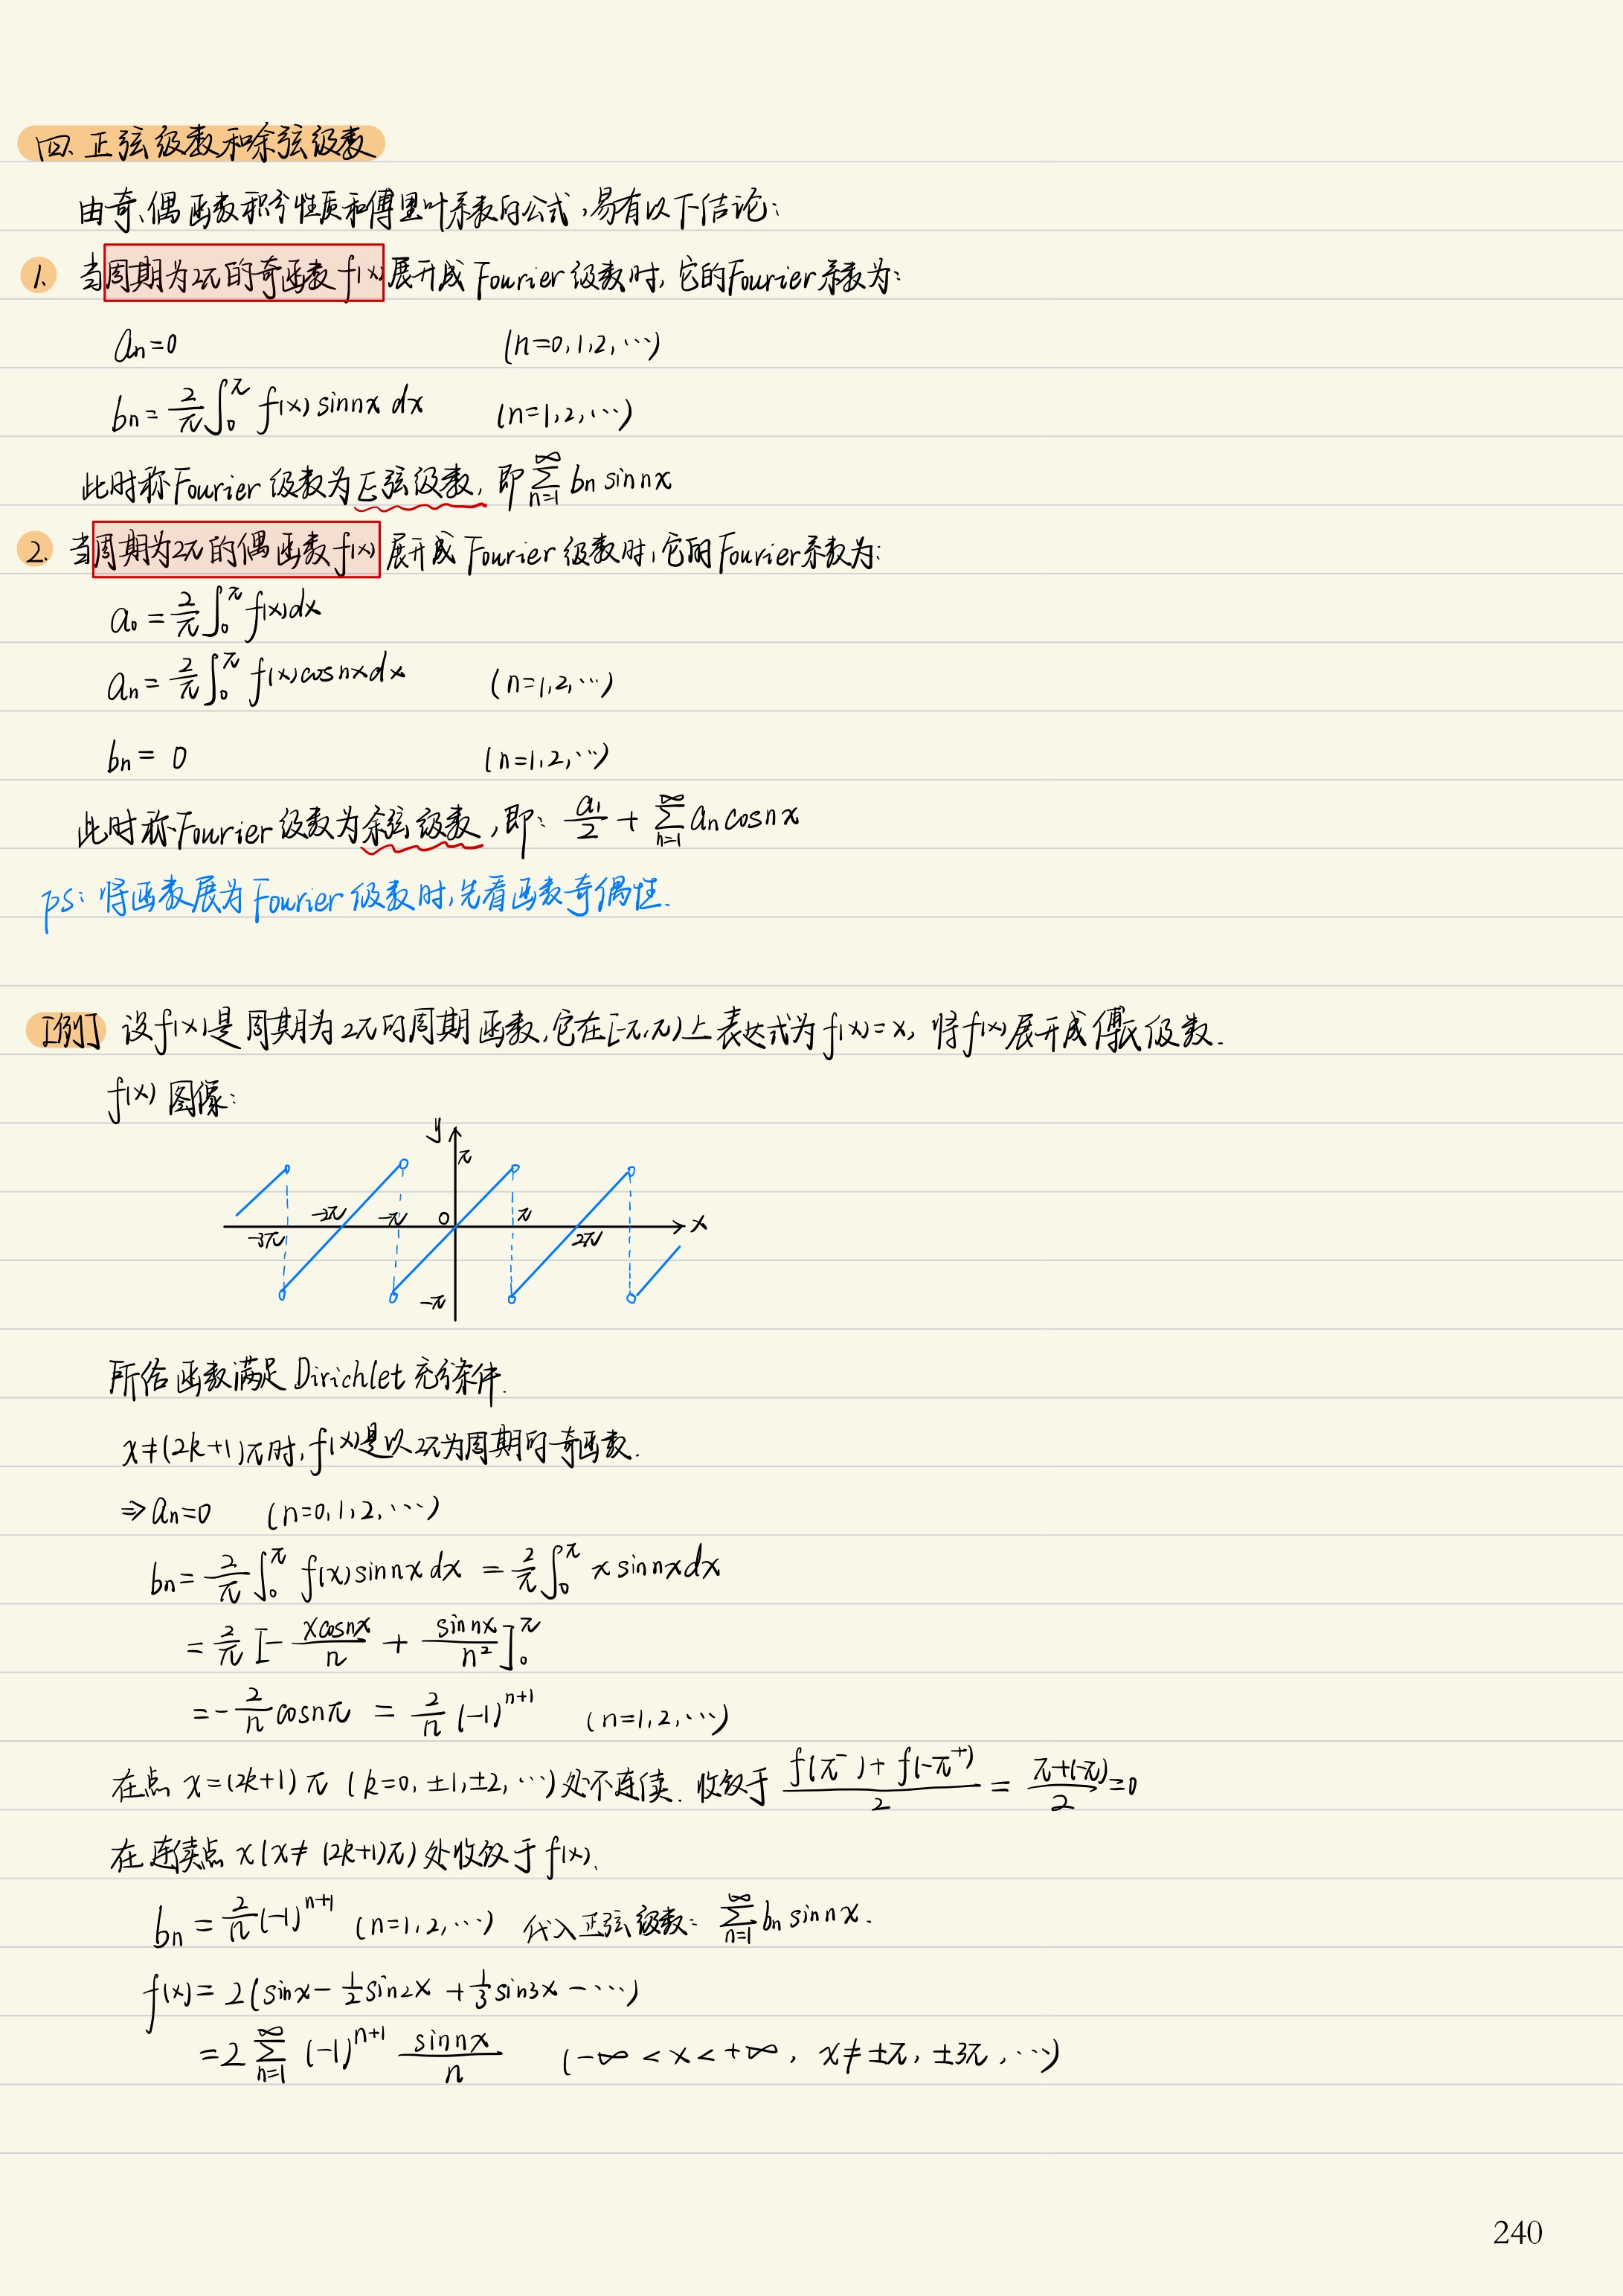 四、正弦级数和余弦级数
由奇、偶函数积分性质和傅里叶系数的公式,易有以下结论:
1. 当周期为2π的奇函数f(x)展开成Fourier级数时,它的Fourier系数为:
an=0 (n=0,1,2,…)
bn=2/π∫₀^π f(x)sinnx dx (n=1,2,…)
此时称Fourier级数为正弦级数,即∑_{n=1}^∞ bn sinnx
2. 当周期为2π的偶函数f(x)展开成Fourier级数时,它的Fourier系数为:
a₀=2/π∫₀^π f(x)dx
an=2/π∫₀^π f(x)cosnxdx (n=1,2,…)
bn=0 (n=1,2,…)
此时称Fourier级数为余弦级数,即: a₁/2+∑_{n=1}^∞ an cosnx
ps: 将函数展为Fourier级数时,先看函数奇偶性.
[例] 设f(x)是周期为2π的周期函数,它在[-π,π)上表达式为f(x)=x, 将f(x)展开成傅氏级数.
f(x)图像:
y
π
-2π -π 0 π x
-3π 2π
-π
所给函数满足Dirichlet充分条件.
x≠(2k+1)π时,f(x)是以2π为周期的奇函数.
⇒an=0 (n=0,1,2,…)
bn=2/π∫₀^π f(x)sinnx dx=2/π∫₀^π x sinnxdx
=2/π[-xcosnx/n+sinnx/n²]₀^π
=-2/n cosnπ=2/n(-1)^{n+1} (n=1,2,…)
在点x=(2k+1)π (k=0,±1,±2,…)处不连续.收敛于 (f(π⁻)+f(-π⁺))/2=(π+(-π))/2=0
在连续点x(x≠(2k+1)π)处收敛于f(x).
bn=2/n(-1)^{n+1} (n=1,2,…) 代入正弦级数: ∑_{n=1}^∞ bn sinnx.
f(x)=2(sinx-1/2sin2x+1/3sin3x-…)
=2∑_{n=1}^∞(-1)^{n+1} sinnx/n (-∞<x<+∞, x≠±π, ±3π,…)
240